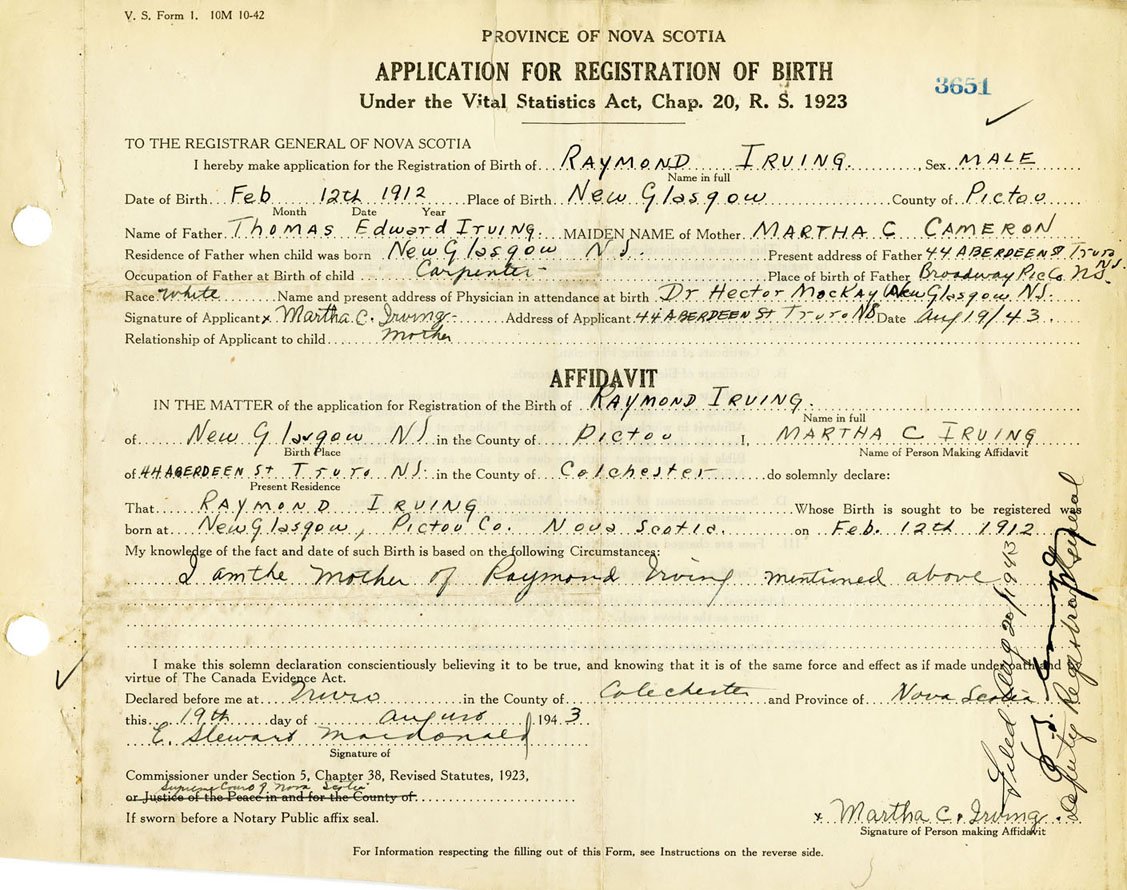 V. S. Form 1. 10M 10-42
PROVINCE OF NOVA SCOTIA
APPLICATION FOR REGISTRATION OF BIRTH
3651
Under the Vital Statistics Act, Chap. 20, R. S. 1923
TO THE REGISTRAR GENERAL OF NOVA SCOTIA
I hereby make application for the Registration of Birth of RAYMOND IRVING, Sex MALE
Name in full
Date of Birth Feb 12th 1912 Place of Birth New Glasgow County of Pictou
Month Date Year
Name of Father THOMAS Edward IRVING MAIDEN NAME of Mother MARTHA C CAMERON
Residence of Father when child was born New Glasgow NS. Present address of Father 44 ABERDEEN St Truro NS.
Occupation of Father at Birth of child Carpenter Place of birth of Father Broadway Pic Co. NS.
Race White Name and present address of Physician in attendance at birth Dr Hector MacKay New Glasgow NS.
Signature of Applicant x Martha C. Irving Address of Applicant 44 ABERDEEN St Truro NS Date Aug 19/43.
Relationship of Applicant to child Mother
AFFIDAVIT
IN THE MATTER of the application for Registration of the Birth of RAYMOND IRVING.
Name in full
of New Glasgow NS in the County of Pictou I, MARTHA C IRVING
Birth Place Name of Person Making Affidavit
of 44 ABERDEEN St Truro NS. in the County of Colchester do solemnly declare:
Present Residence
That RAYMOND IRVING Whose Birth is sought to be registered was
born at New Glasgow, Pictou Co. Nova Scotia. on Feb. 12th 1912
My knowledge of the fact and date of such Birth is based on the following Circumstances:
I am the Mother of Raymond Irving mentioned above
I make this solemn declaration conscientiously believing it to be true, and knowing that it is of the same force and effect as if made under oath and by
virtue of The Canada Evidence Act.
Declared before me at Truro in the County of Colchester and Province of Nova Scotia
this 19th day of August 1943
E. Steward Macdonald
Signature of
Commissioner under Section 5, Chapter 38, Revised Statutes, 1923,
Supreme Court of Nova Scotia
or Justice of the Peace in and for the County of
If sworn before a Notary Public affix seal.
x Martha C. Irving
Signature of Person making Affidavit
For Information respecting the filling out of this Form, see Instructions on the reverse side.
Filed Aug 20/1943
Deputy Registrar General